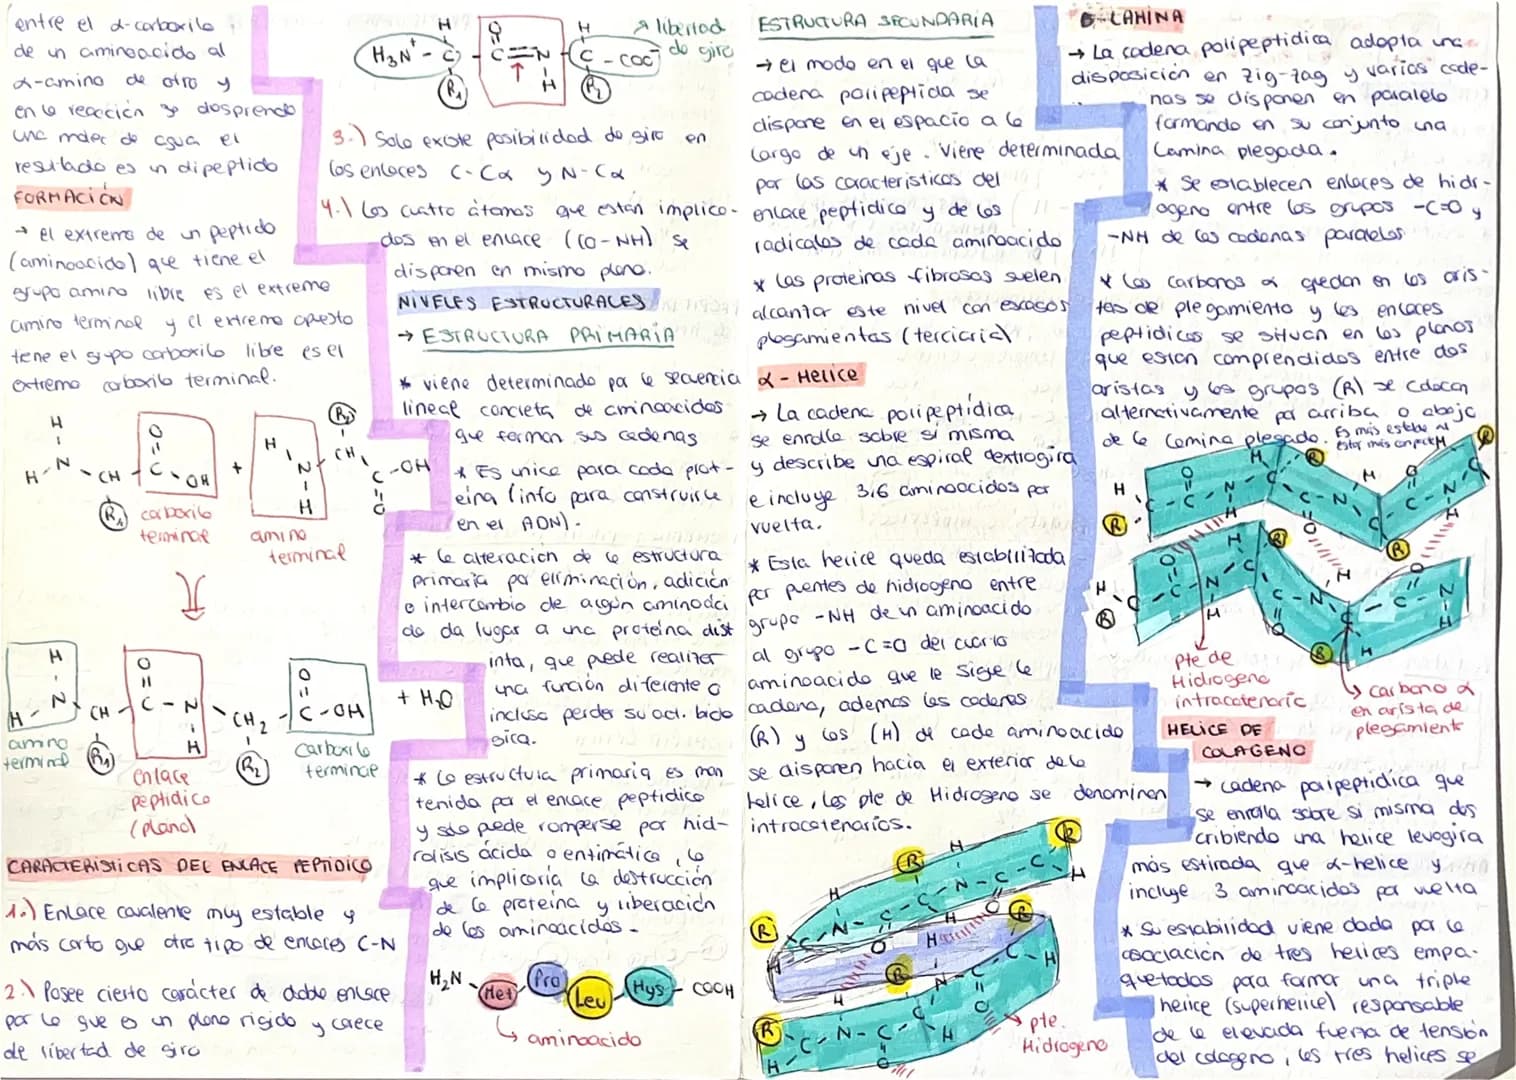 entre el α-carboxilo
de un aminoacido al
α-amino de otro y
en la reacción se desprende
una molec de agua el
resultado es un dipeptido
FORMACIÓN
→ el extremo de un peptido
(aminoacido) que tiene el
grupo amino libre es el extremo
amino terminal y el extremo opuesto
tiene el grupo carboxilo libre es el
extremo carboxilo terminal.
H
H - N - CH
R1
O
C - OH
carboxilo
terminal
+
H
N
H
amino
terminal
R2
CH
C - OH
O
H
H - N
amino
terminal
CH
R1
O
C - N
H
enlace
peptidico
(plano)
CH2
R2
O
C - OH
carboxilo
terminal
+ H2O
CARACTERISTICAS DEL ENLACE PEPTIDICO
1.) Enlace covalente muy estable y
más corto que otro tipo de enlaces C-N
2.) Posee cierto carácter de doble enlace
por lo que es un plano rigido y carece
de libertad de giro
H3N+ - C
H
R1
O
C = N
H
H
C - COO-
R2
libertad
de giro
3.) Solo existe posibilidad de giro en
los enlaces C-Cα y N-Cα
4.) Los cuatro átomos que están implica-
dos en el enlace (CO-NH) se
disponen en mismo plano.
NIVELES ESTRUCTURALES
→ ESTRUCTURA PRIMARIA
* viene determinado por la secuencia
lineal concreta de aminoacidos
que forman sus cadenas
* Es unica para cada prot-
eina (info para construirla
en el ADN).
* la alteración de la estructura
primaria por eliminación, adición
o intercambio de algún aminoáci
do da lugar a una proteína dist
inta, que puede realizar
una función diferente o
incluso perder su act. bioló
gica.
* La estructura primaria es man
tenida por el enlace peptidico
y solo puede romperse por hid-
rolisis ácida o enzimática, lo
que implicaría la destrucción
de la proteína y liberación
de los aminoacidos.
H2N - Met Pro Leu Hys - COOH
aminoacido
ESTRUCTURA SECUNDARIA
→ el modo en el que la
cadena polipeptida se
dispone en el espacio a lo
largo de un eje. Viene determinada
por las caracteristicas del
enlace peptidico y de los
radicales de cada aminoacido
* Las proteinas fibrosas suelen
alcanzar este nivel con escasos
plegamientos (terciaria)
α - Helice
→ La cadena polipeptídica
se enrolla sobre sí misma
y describe una espiral dextrogira
e incluye 3,6 aminoacidos por
vuelta.
* Esta helice queda estabilizada
por puentes de hidrogeno entre
grupo -NH de un aminoacido
al grupo -C=O del cuarto
aminoacido que le sigue la
cadena, ademas las cadenas
(R) y los (H) de cada aminoacido
se disponen hacia el exterior de la
helice, los pte de Hidrogeno se denominan
intracatenarios.
pte.
Hidrogeno
β - LAMINA
→ La cadena polipeptidica adopta una
disposición en zig-zag y varias cade-
nas se disponen en paralelo
formando en su conjunto una
lamina plegada.
* Se establecen enlaces de hidr-
ogeno entre los grupos -C=O y
-NH de las cadenas paralelas
* Los carbonos α quedan en las aris-
tas de plegamiento y los enlaces
peptidicos se situan en los planos
que estan comprendidos entre dos
aristas y los grupos (R) se colocan
alternativamente por arriba o abajo
de la lamina plegada. Es más estable al
estar más compact
pte de
Hidrogeno
intracatenaric
carbono α
en arista de
plegamiento
HELICE DE
COLAGENO
→ cadena polipeptidica que
se enrolla sobre si misma des
cribiendo una helice levogira
más estirada que α-helice y
incluye 3 aminoacidos por vuelta
* Su estabilidad viene dada por la
asociación de tres helices empa-
quetadas para formar una triple
helice (superhelice) responsable
de la elevada fuerza de tensión
del colageno, las tres helices se